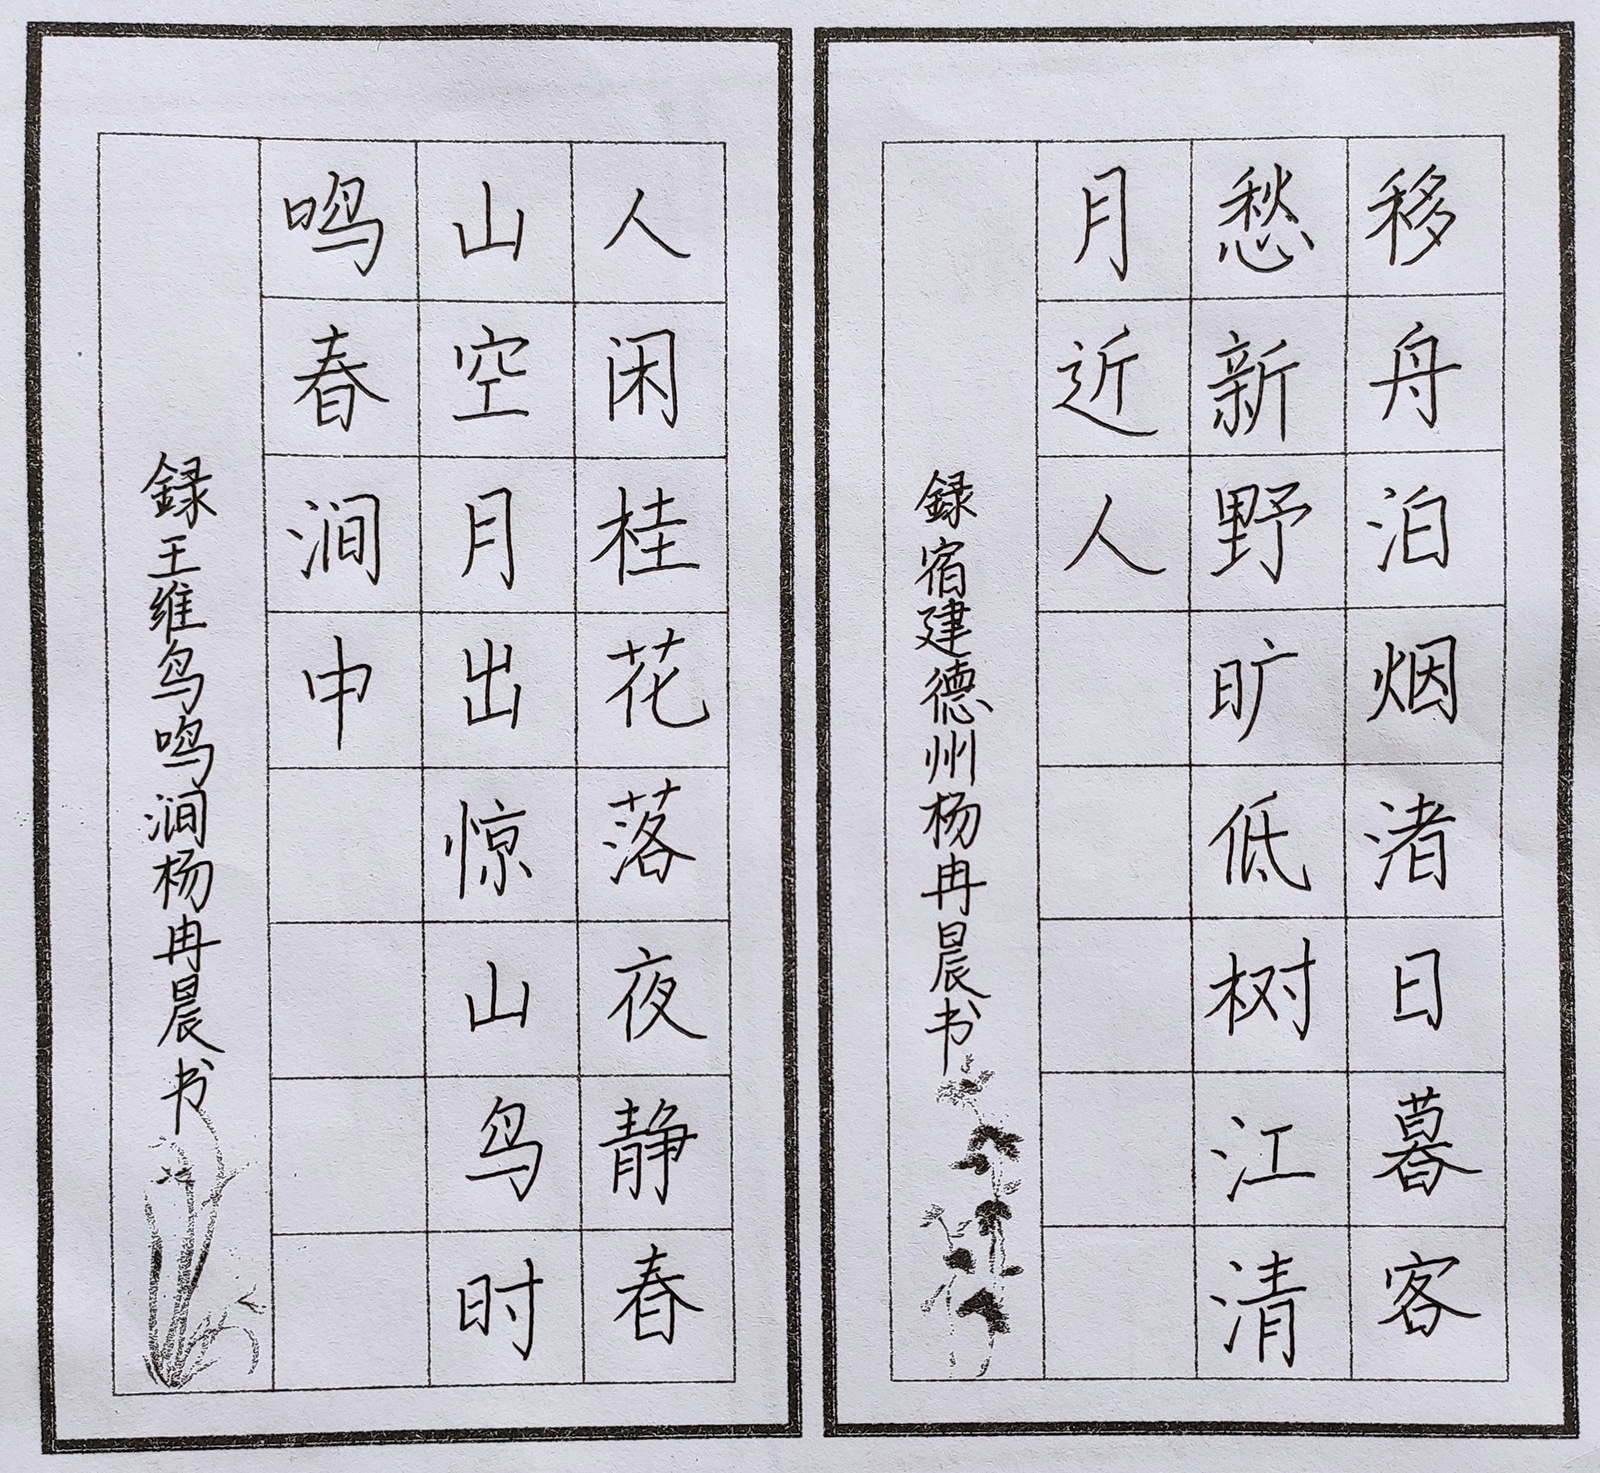 移舟泊烟渚日暮客
愁新野旷低树江清
月近人
録宿建德州杨冉晨书
人闲桂花落夜静春
山空月出惊山鸟时
鸣春涧中
録王维鸟鸣涧杨冉晨书